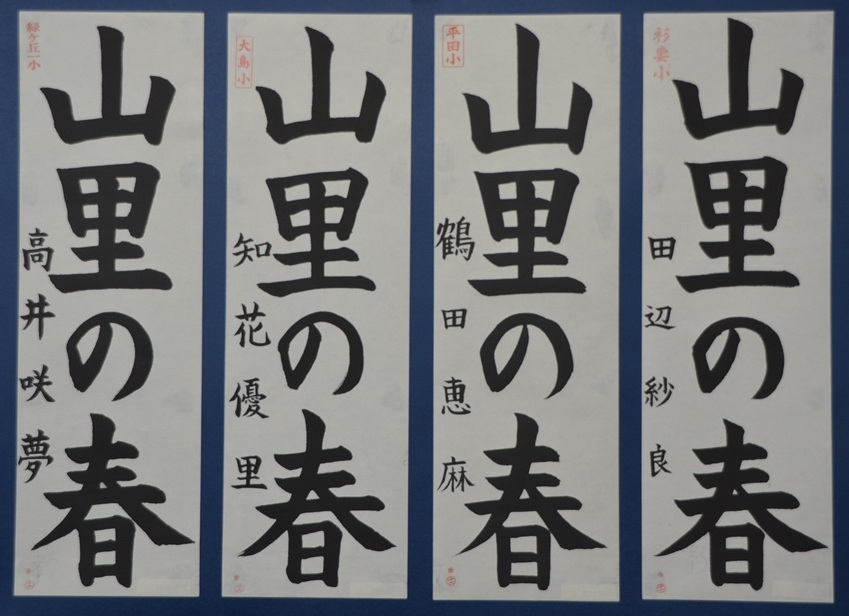 緑ケ丘一小
山里の春
高井咲夢
大島小
山里の春
知花優里
平田小
山里の春
鶴田恵麻
杉妻小
山里の春
田辺紗良